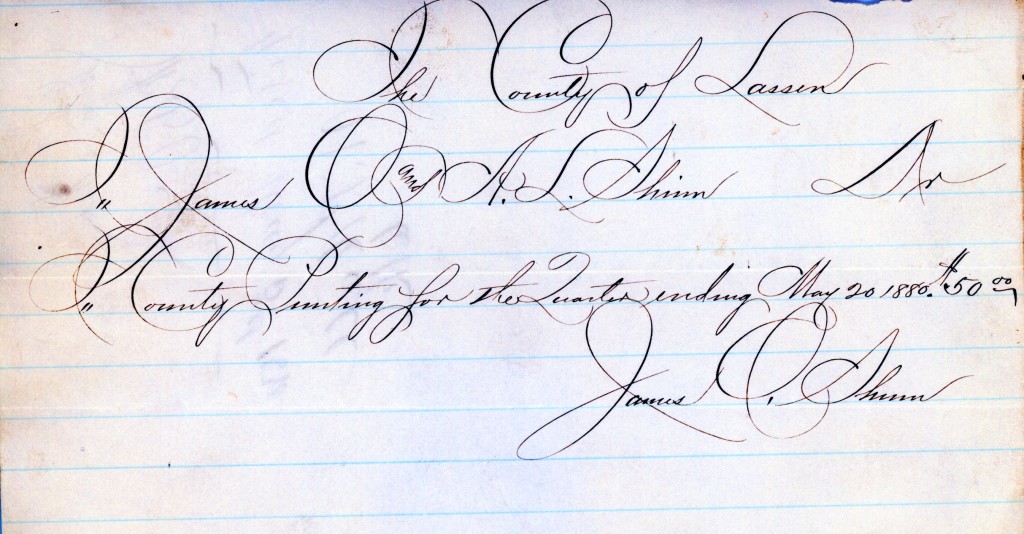 The County of Lassen
To James O and A. L. Shinn Dr
To County Printing for the Quarter ending May 20 1880. $50 00
James O. Shinn